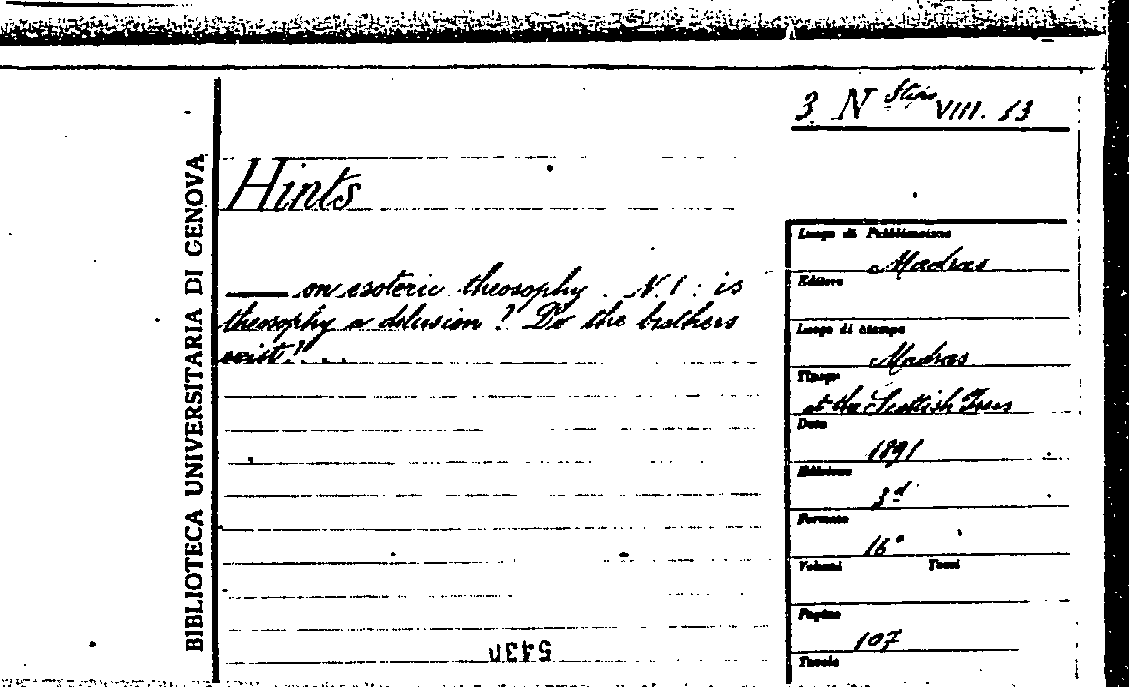 3 N Stip VIII. 13
BIBLIOTECA UNIVERSITARIA DI GENOVA
Hints
—— on esoteric theosophy. N. 1 : is
theosophy a delusion? Do the brothers
exist? ...
Luogo di Pubblicazione
Madras
Editore
Luogo di stampa
Madras
Tipogr.
at the Scottish Press
Data
1891
Edizione
3d
Formato
16°
Volumi Tomi
Pagine
107
Tavole